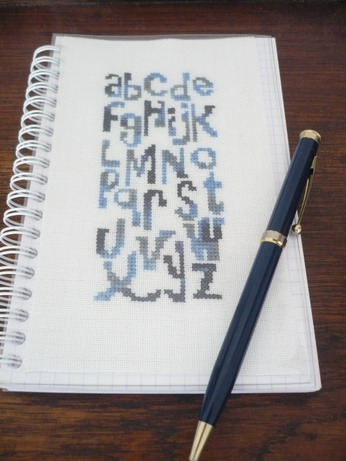 abcde
FgHijK
LMNO
Pqrst
uvw
xyz